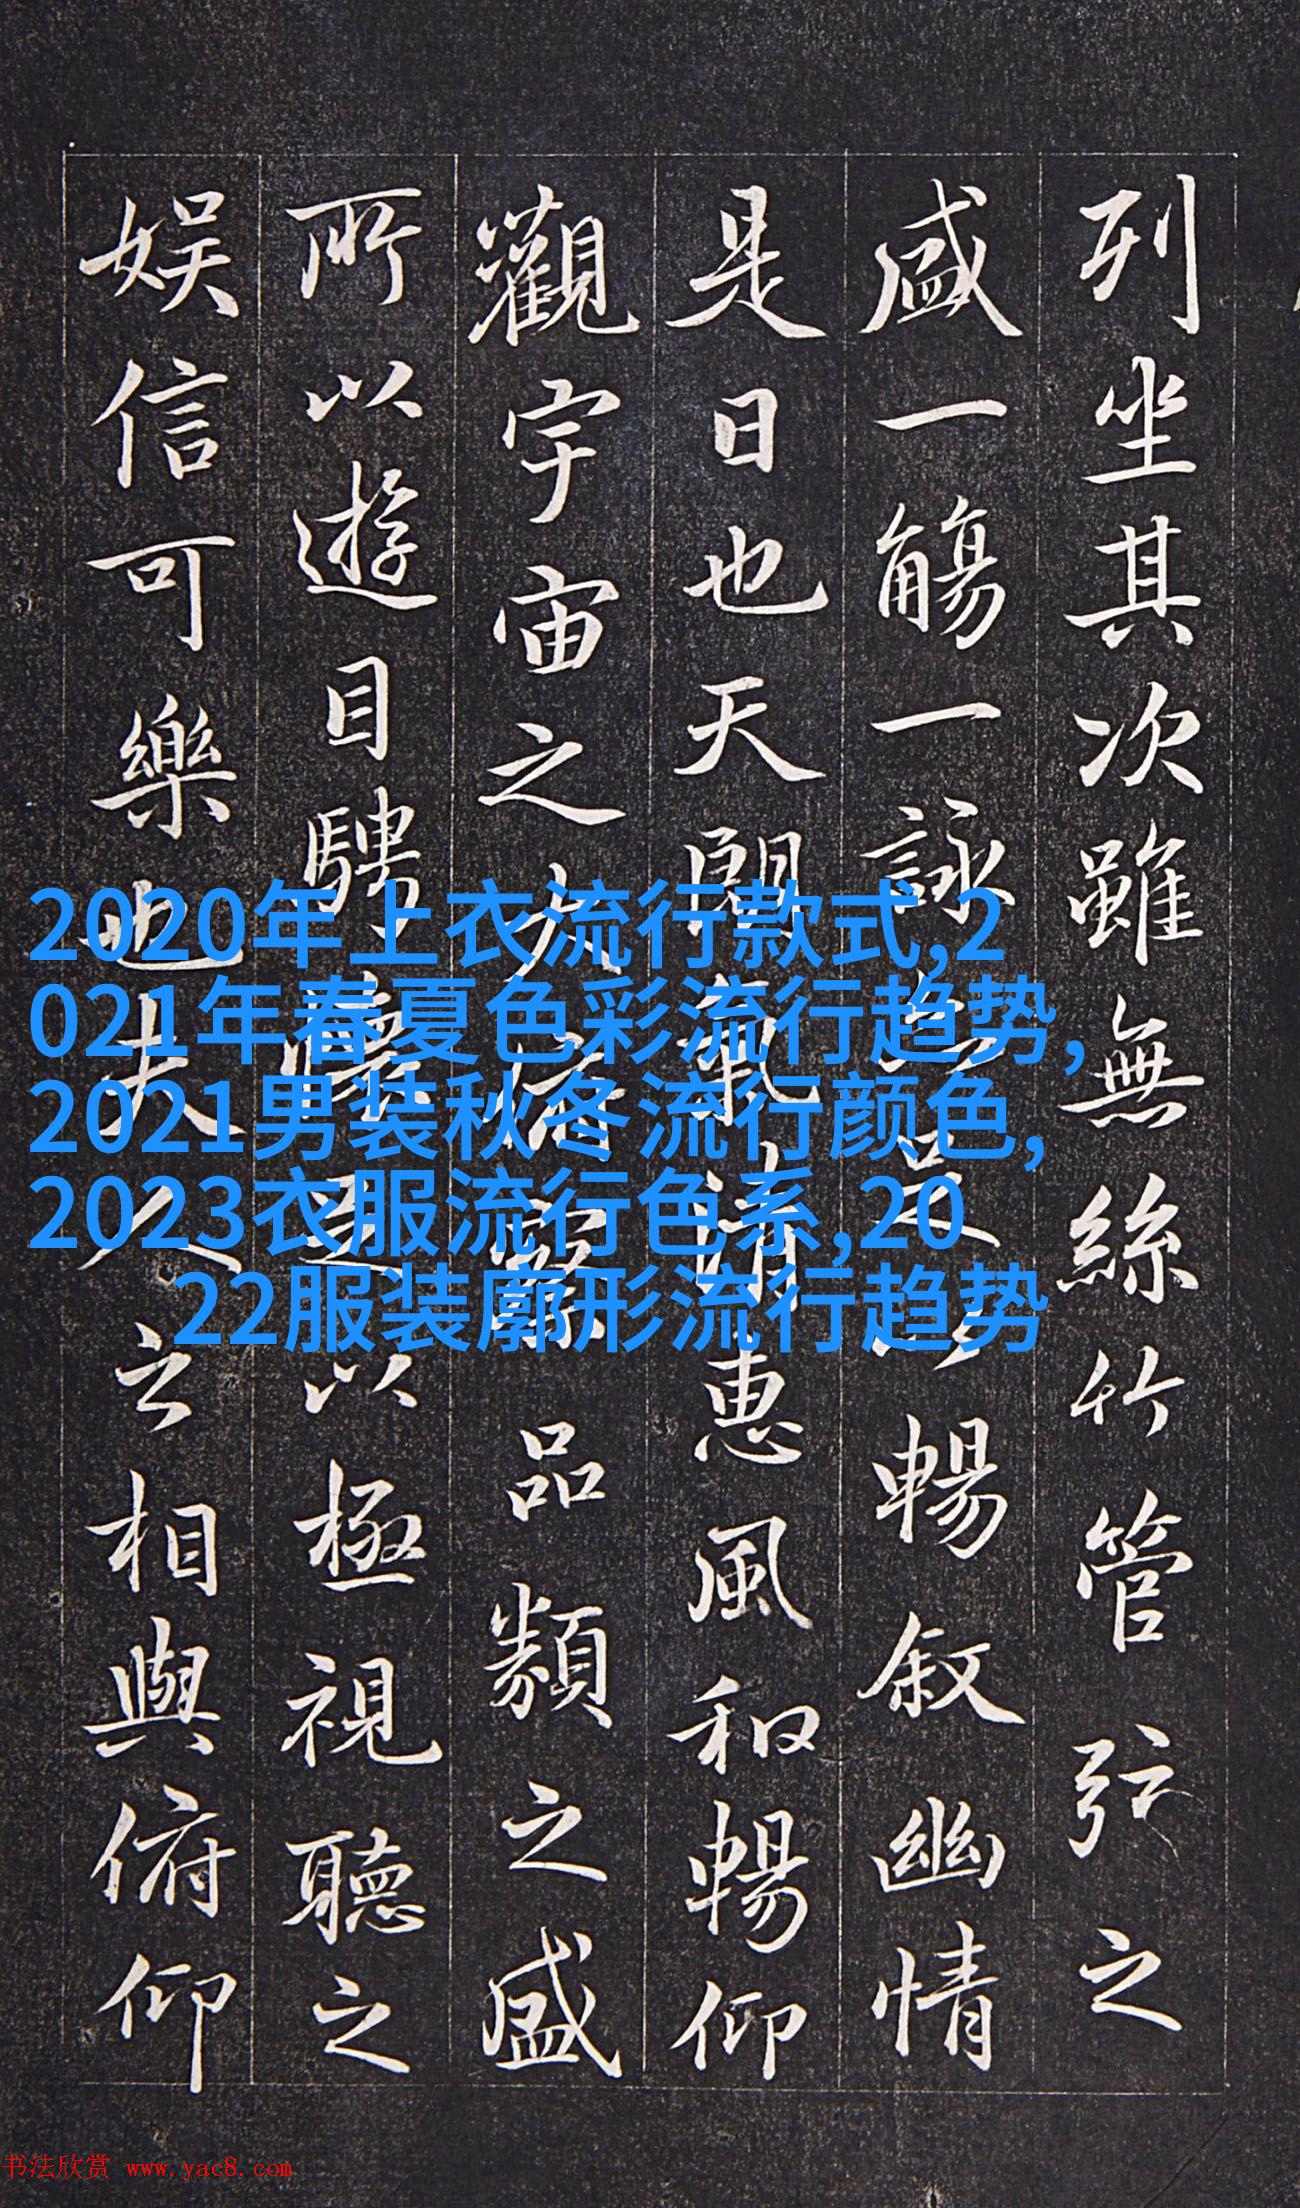 列坐其次雖無絲竹管弦之
盛一觴一詠亦足以暢敘幽情
是日也天朗氣清惠風和暢仰
觀宇宙之大俯察品類之盛
所以遊目騁懷足以極視聽之
娛信可樂也夫人之相與俯仰
2020年上衣流行款式,2
021年春夏色彩流行趋势,
2021男装秋冬流行颜色,
2023衣服流行色系,20
22服装廓形流行趋势
书法欣赏 www.yac8.com